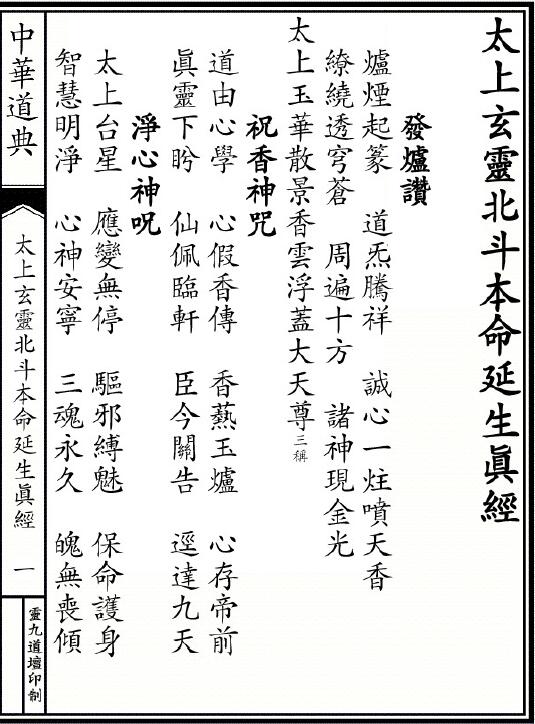 太上玄靈北斗本命延生眞經
發爐讚
爐煙起篆　道炁騰祥　誠心一炷噴天香
繚繞透穹蒼　周遍十方　諸神現金光
太上玉華散景香雲浮蓋大天尊三稱
祝香神咒
道由心學　心假香傳　香爇玉爐　心存帝前
眞靈下盻　仙佩臨軒　臣今關告　逕達九天
淨心神呪
太上台星　應變無停　驅邪縛魅　保命護身
智慧明淨　心神安寧　三魂永久　魄無喪傾
中華道典
太上玄靈北斗本命延生眞經
一
靈九道壇印制